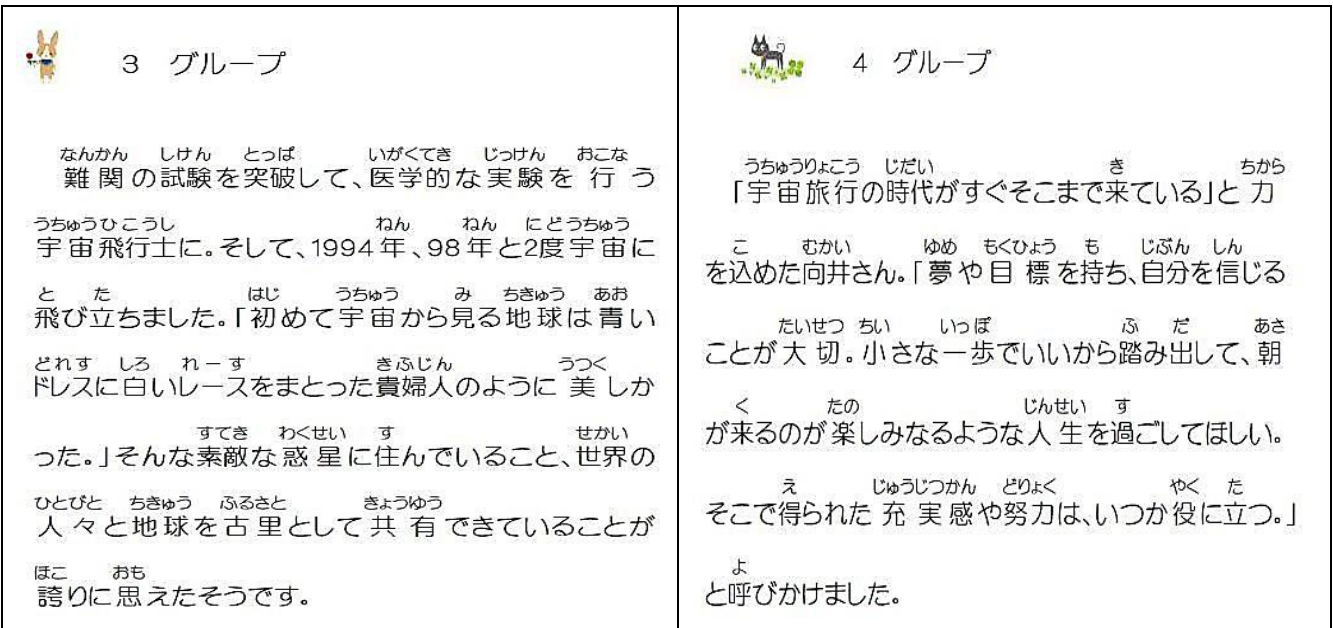 3 グループ
なんかん しけん とっぱ いがくてき じっけん おこな
難関の試験を突破して、医学的な実験を行う
うちゅうひこうし ねん ねん にどうちゅう
宇宙飛行士に。そして、1994年、98年と2度宇宙に
と た はじ うちゅう み ちきゅう あお
飛び立ちました。「初めて宇宙から見る地球は青い
どれす しろ れーす きふじん うつく
ドレスに白いレースをまとった貴婦人のように美しか
すてき わくせい す せかい
った。」そんな素敵な惑星に住んでいること、世界の
ひとびと ちきゅう ふるさと きょうゆう
人々と地球を古里として共有できていることが
ほこ おも
誇りに思えたそうです。
4 グループ
うちゅうりょこう じだい き ちから
「宇宙旅行の時代がすぐそこまで来ている」と力
こ むかい ゆめ もくひょう も じぶん しん
を込めた向井さん。「夢や目標を持ち、自分を信じる
たいせつ ちい いっぽ ふ だ あさ
ことが大切。小さな一歩でいいから踏み出して、朝
く たの じんせい す
が来るのが楽しみなるような人生を過ごしてほしい。
え じゅうじつかん どりょく やく た
そこで得られた充実感や努力は、いつか役に立つ。」
よ
と呼びかけました。